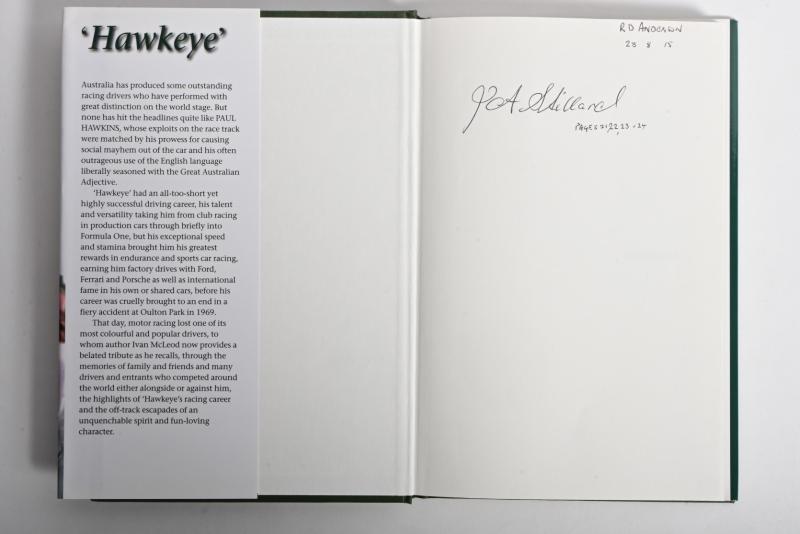 ‘Hawkeye’
Australia has produced some outstanding
racing drivers who have performed with
great distinction on the world stage. But
none has hit the headlines quite like PAUL
HAWKINS, whose exploits on the race track
were matched by his prowess for causing
social mayhem out of the car and his often
outrageous use of the English language
liberally seasoned with the Great Australian
Adjective.
‘Hawkeye’ had an all-too-short yet
highly successful driving career, his talent
and versatility taking him from club racing
in production cars through briefly into
Formula One, but his exceptional speed
and stamina brought him his greatest
rewards in endurance and sports car racing,
earning him factory drives with Ford,
Ferrari and Porsche as well as international
fame in his own or shared cars, before his
career was cruelly brought to an end in a
fiery accident at Oulton Park in 1969.
That day, motor racing lost one of its
most colourful and popular drivers, to
whom author Ivan McLeod now provides a
belated tribute as he recalls, through the
memories of family and friends and many
drivers and entrants who competed around
the world either alongside or against him,
the highlights of ‘Hawkeye’s racing career
and the off-track escapades of an
unquenchable spirit and fun-loving
character.
R D ANDERSON
23 8 15
PAGES 21,22,23,24